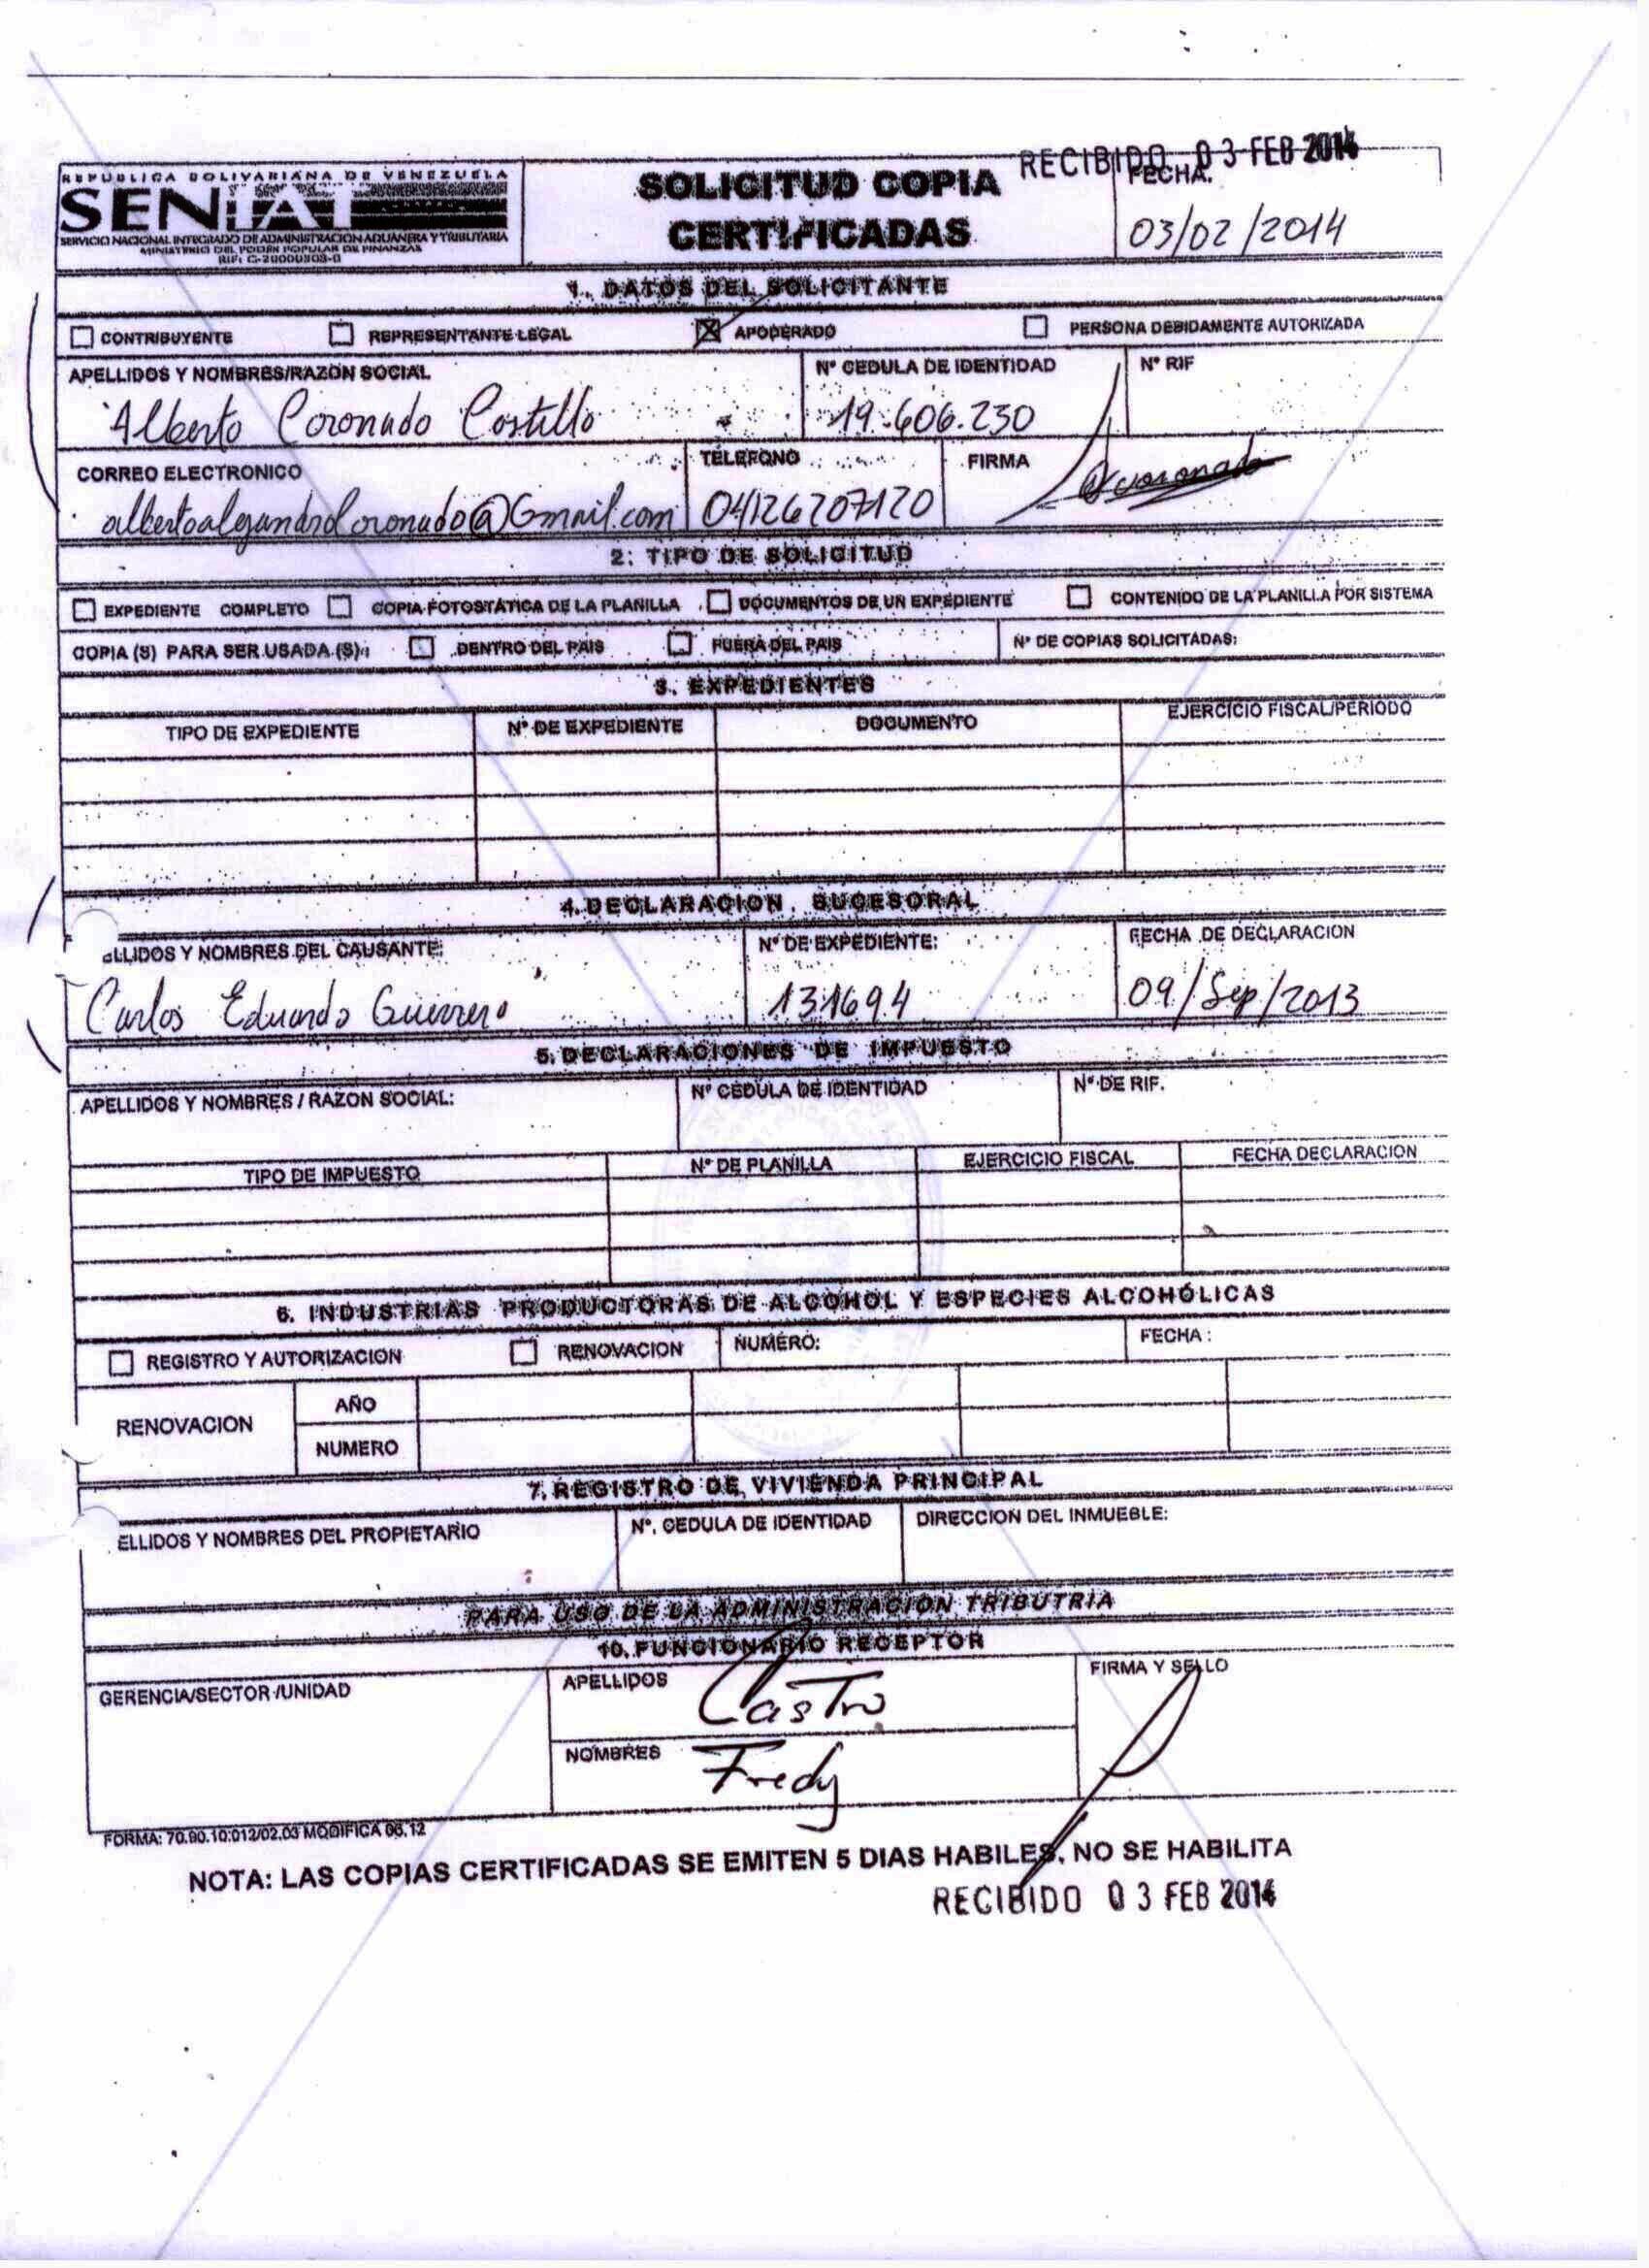 RECIBIDO 03 FEB 2014
REPUBLICA BOLIVARIANA DE VENEZUELA
SENIAT
SERVICIO NACIONAL INTEGRADO DE ADMINISTRACION ADUANERA Y TRIBUTARIA
MINISTERIO DEL PODER POPULAR DE FINANZAS
RIF: G-20000303-0
SOLICITUD COPIA
CERTIFICADAS
FECHA:
03/02/2014
1. DATOS DEL SOLICITANTE
CONTRIBUYENTE REPRESENTANTE LEGAL APODERADO PERSONA DEBIDAMENTE AUTORIZADA
APELLIDOS Y NOMBRES/RAZON SOCIAL N° CEDULA DE IDENTIDAD N° RIF
Alberto Coronado Castillo 19.606.230
CORREO ELECTRONICO TELEFONO FIRMA
04126207120
2. TIPO DE SOLICITUD
EXPEDIENTE COMPLETO COPIA FOTOSTÁTICA DE LA PLANILLA DOCUMENTOS DE UN EXPEDIENTE CONTENIDO DE LA PLANILLA POR SISTEMA
COPIA (S) PARA SER USADA (S): DENTRO DEL PAIS FUERA DEL PAIS N° DE COPIAS SOLICITADAS:
3. EXPEDIENTES
TIPO DE EXPEDIENTE N° DE EXPEDIENTE DOCUMENTO EJERCICIO FISCAL/PERIODO
4. DECLARACION SUCESORAL
ELLIDOS Y NOMBRES DEL CAUSANTE: N° DE EXPEDIENTE: FECHA DE DECLARACION
Carlos Eduardo Guerrero 131694 09/Sep/2013
5. DECLARACIONES DE IMPUESTO
APELLIDOS Y NOMBRES / RAZON SOCIAL: N° CEDULA DE IDENTIDAD N° DE RIF.
TIPO DE IMPUESTO N° DE PLANILLA EJERCICIO FISCAL FECHA DECLARACION
6. INDUSTRIAS PRODUCTORAS DE ALCOHOL Y ESPECIES ALCOHÓLICAS
REGISTRO Y AUTORIZACION RENOVACION NUMERO: FECHA:
RENOVACION AÑO
NUMERO
7. REGISTRO DE VIVIENDA PRINCIPAL
ELLIDOS Y NOMBRES DEL PROPIETARIO N°. CEDULA DE IDENTIDAD DIRECCION DEL INMUEBLE:
PARA USO DE LA ADMINISTRACION TRIBUTRIA
10. FUNCIONARIO RECEPTOR
GERENCIA/SECTOR/UNIDAD APELLIDOS Castro FIRMA Y SELLO
NOMBRES Fredy
FORMA: 70.90.10:012/02.03 MODIFICA 06.12
NOTA: LAS COPIAS CERTIFICADAS SE EMITEN 5 DIAS HABILES, NO SE HABILITA
RECIBIDO 03 FEB 2014